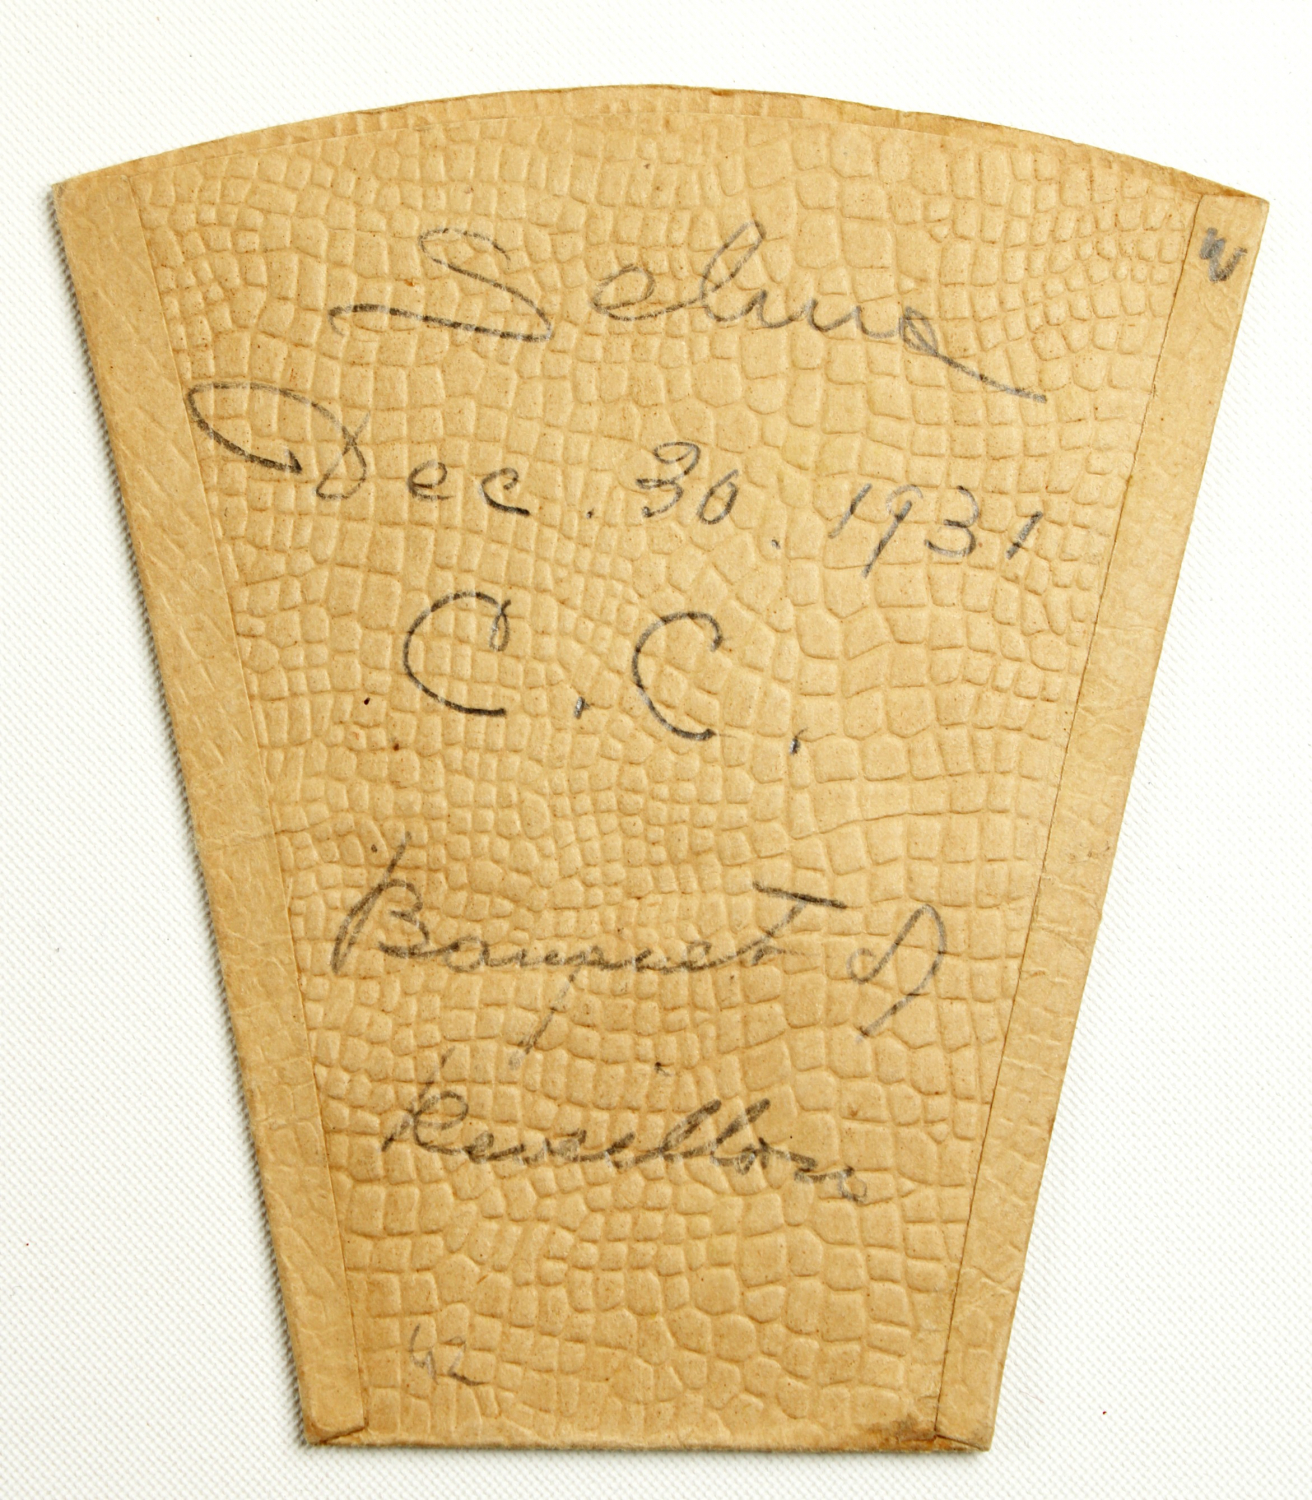 Selma
Dec. 30. 1931
C. C.
Banquet of
Reveillon